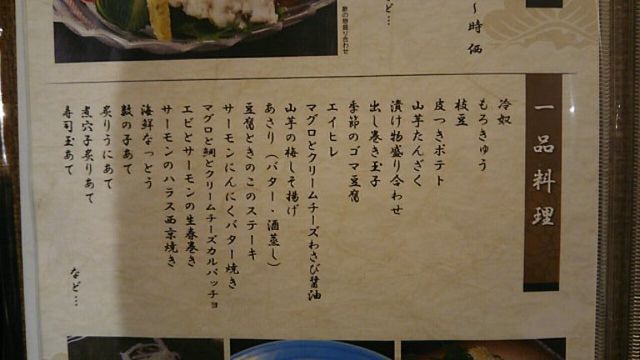 鮑の磯盛り合わせ
など…
～時価
一品料理
冷奴
もろきゅう
枝豆
皮つきポテト
山芋たんざく
漬け物盛り合わせ
出し巻き玉子
季節のゴマ豆腐
エイヒレ
マグロとクリームチーズわさび醤油
山芋の梅しそ揚げ
あさり（バター・酒蒸し）
豆腐ときのこのステーキ
サーモンにんにくバター焼き
マグロと鯛とクリームチーズカルパッチョ
エビとサーモンの生春巻き
サーモンのハラス西京焼き
海鮮なっとう
数の子あて
炙りうにあて
煮穴子炙りあて
寿司玉あて
など…